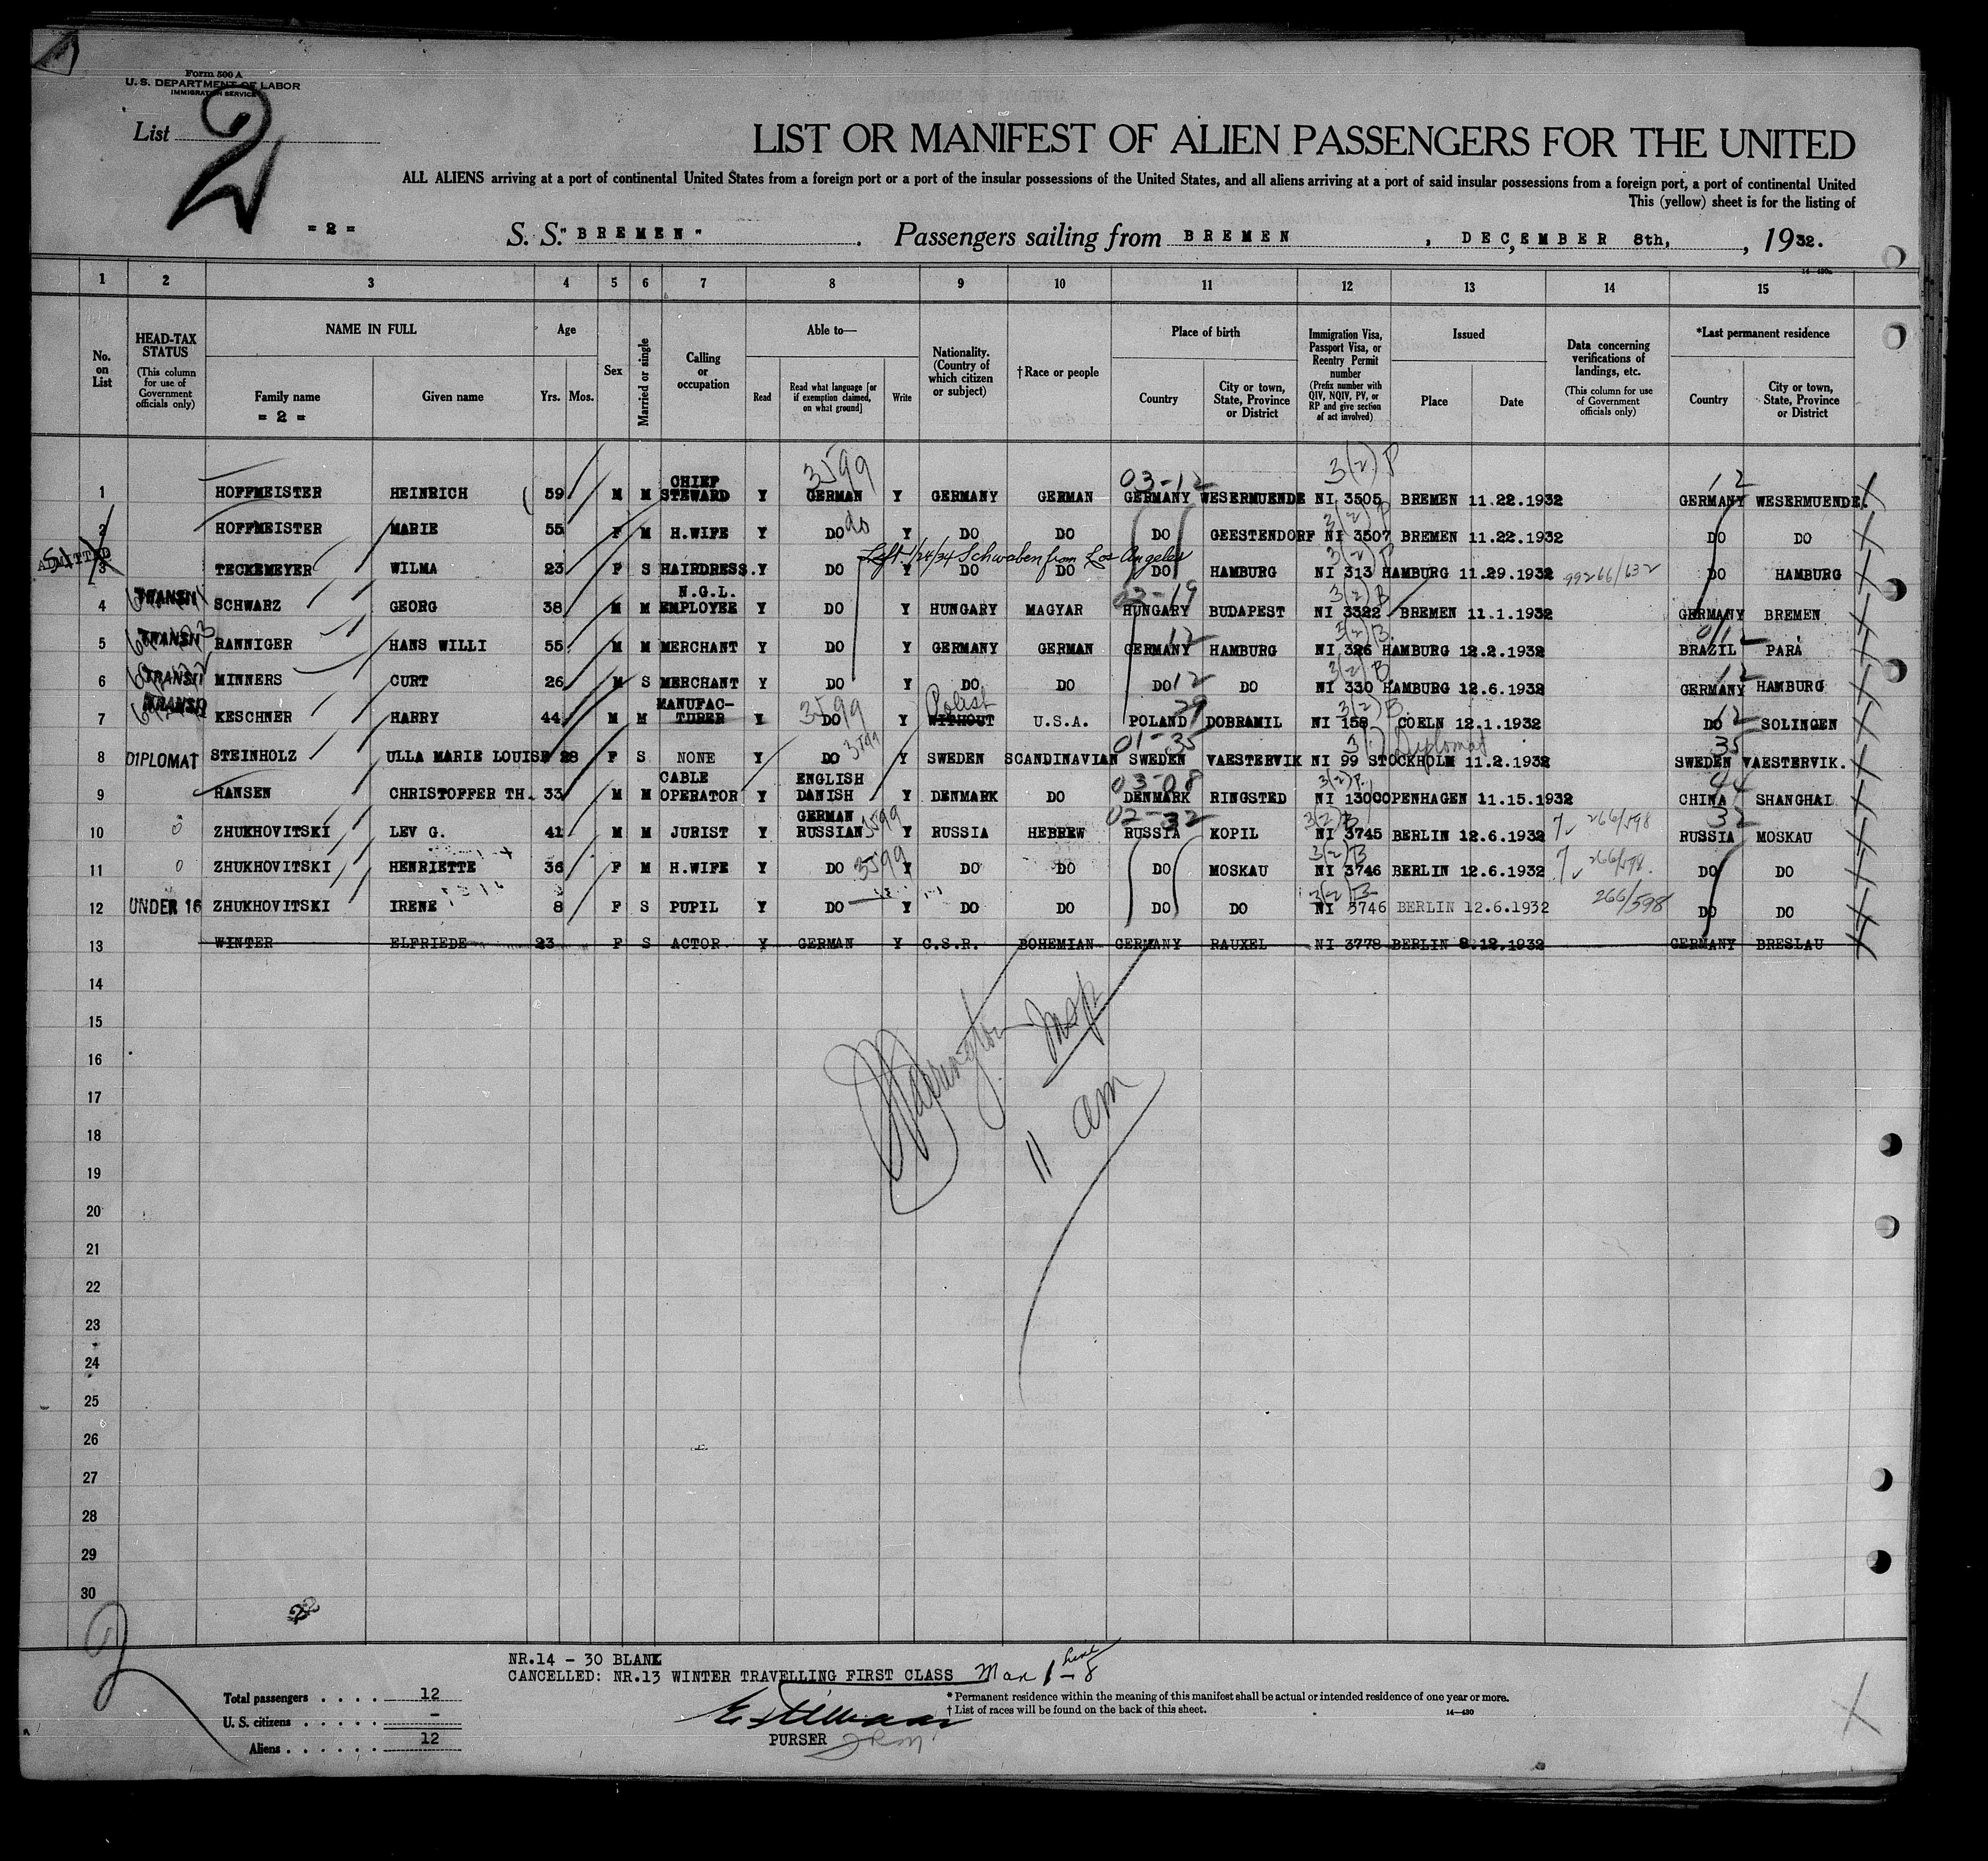 Form 500 A
U. S. DEPARTMENT OF LABOR
IMMIGRATION SERVICE
List 2
LIST OR MANIFEST OF ALIEN PASSENGERS FOR THE UNITED
ALL ALIENS arriving at a port of continental United States from a foreign port or a port of the insular possessions of the United States, and all aliens arriving at a port of said insular possessions from a foreign port, a port of continental United
This (yellow) sheet is for the listing of
= 2 = S. S. "BREMEN" Passengers sailing from BREMEN, DECEMBER 8th, 1932.
1 2 3 4 5 6 7 8 9 10 11 12 13 14 15
No. on List
HEAD-TAX STATUS (This column for use of Government officials only)
NAME IN FULL Family name Given name
= 2 =
Age Yrs. Mos.
Sex
Married or single
Calling or occupation
Able to— Read Read what language [or if exemption claimed, on what ground] Write
Nationality. (Country of which citizen or subject)
†Race or people
Place of birth Country City or town, State, Province or District
Immigration Visa, Passport Visa, or Reentry Permit number (Prefix number with QIV, NQIV, PV, or RP and give section of act involved)
Issued Place Date
Data concerning verifications of landings, etc. (This column for use of Government officials only)
*Last permanent residence Country City or town, State, Province or District
3599 03-12 3(2)P 12
1 HOFFMEISTER HEINRICH 59 M M CHIEF STEWARD Y GERMAN Y GERMANY GERMAN GERMANY WESERMUENDE NI 3505 BREMEN 11.22.1932 GERMANY WESERMUENDE.
do 3(2)P
2 HOFFMEISTER MARIE 55 F M H.WIFE Y DO Y DO DO DO GEESTENDORF NI 3507 BREMEN 11.22.1932 DO DO
ADMITTED Left 1/24/34 Schwaben from Los Angeles 3(2)P
3 TECKEMEYER WILMA 23 F S HAIRDRESS. Y DO Y DO DO DO HAMBURG NI 313 HAMBURG 11.29.1932 99266/632 DO HAMBURG
TRANSIT 02-19 3(2)B
4 SCHWARZ GEORG 38 M M N.G.L. EMPLOYEE Y DO Y HUNGARY MAGYAR HUNGARY BUDAPEST NI 3322 BREMEN 11.1.1932 GERMANY BREMEN
TRANSIT 12 3(2)B
5 RANNIGER HANS WILLI 55 M M MERCHANT Y DO Y GERMANY GERMAN GERMANY HAMBURG NI 326 HAMBURG 12.2.1932 BRAZIL PARÁ
TRANSIT 12 3(2)B 12
6 MINNERS CURT 26 M S MERCHANT Y DO Y DO DO DO DO NI 330 HAMBURG 12.6.1932 GERMANY HAMBURG
TRANSIT 3599 Polish 29 3(2)B 12
7 KESCHNER HARRY 44 M M MANUFAC- TURER Y DO Y WITHOUT U.S.A. POLAND DOBRAMIL NI 158 COELN 12.1.1932 DO SOLINGEN
3599 01-35 3(1) Diplomat 35
8 DIPLOMAT STEINHOLZ ULLA MARIE LOUISE 28 F S NONE Y DO Y SWEDEN SCANDINAVIAN SWEDEN VAESTERVIK NI 99 STOCKHOLM 11.2.1932 SWEDEN VAESTERVIK.
03-08 3(2)B 44
9 HANSEN CHRISTOFFER TH. 33 M M CABLE OPERATOR Y ENGLISH DANISH Y DENMARK DO DENMARK RINGSTED NI 130 COPENHAGEN 11.15.1932 CHINA SHANGHAI
3599 02-32 3(2)B 32
10 ZHUKHOVITSKI LEV G. 41 M M JURIST Y GERMAN RUSSIAN Y RUSSIA HEBREW RUSSIA KOPIL NI 3745 BERLIN 12.6.1932 266/598 RUSSIA MOSKAU
3599 3(2)B
11 ZHUKHOVITSKI HENRIETTE 36 F M H.WIFE Y DO Y DO DO DO MOSKAU NI 3746 BERLIN 12.6.1932 266/598 DO DO
3(2)B
12 UNDER 16 ZHUKHOVITSKI IRENE 8 F S PUPIL Y DO Y DO DO DO DO NI 3746 BERLIN 12.6.1932 266/598 DO DO
13 WINTER ELFRIEDE 23 F S ACTOR Y GERMAN Y C.S.R. BOHEMIAN GERMANY RAUXEL NI 3778 BERLIN 8.12.1932 GERMANY BRESLAU
14
15
16
17
18
19
20
21
22
23
24
25
26
27
28
29
30
Insp
11 am
NR.14 - 30 BLANK
CANCELLED: NR.13 WINTER TRAVELLING FIRST CLASS
Total passengers 12
U. S. citizens -
Aliens 12
PURSER
* Permanent residence within the meaning of this manifest shall be actual or intended residence of one year or more.
† List of races will be found on the back of this sheet.
14—430